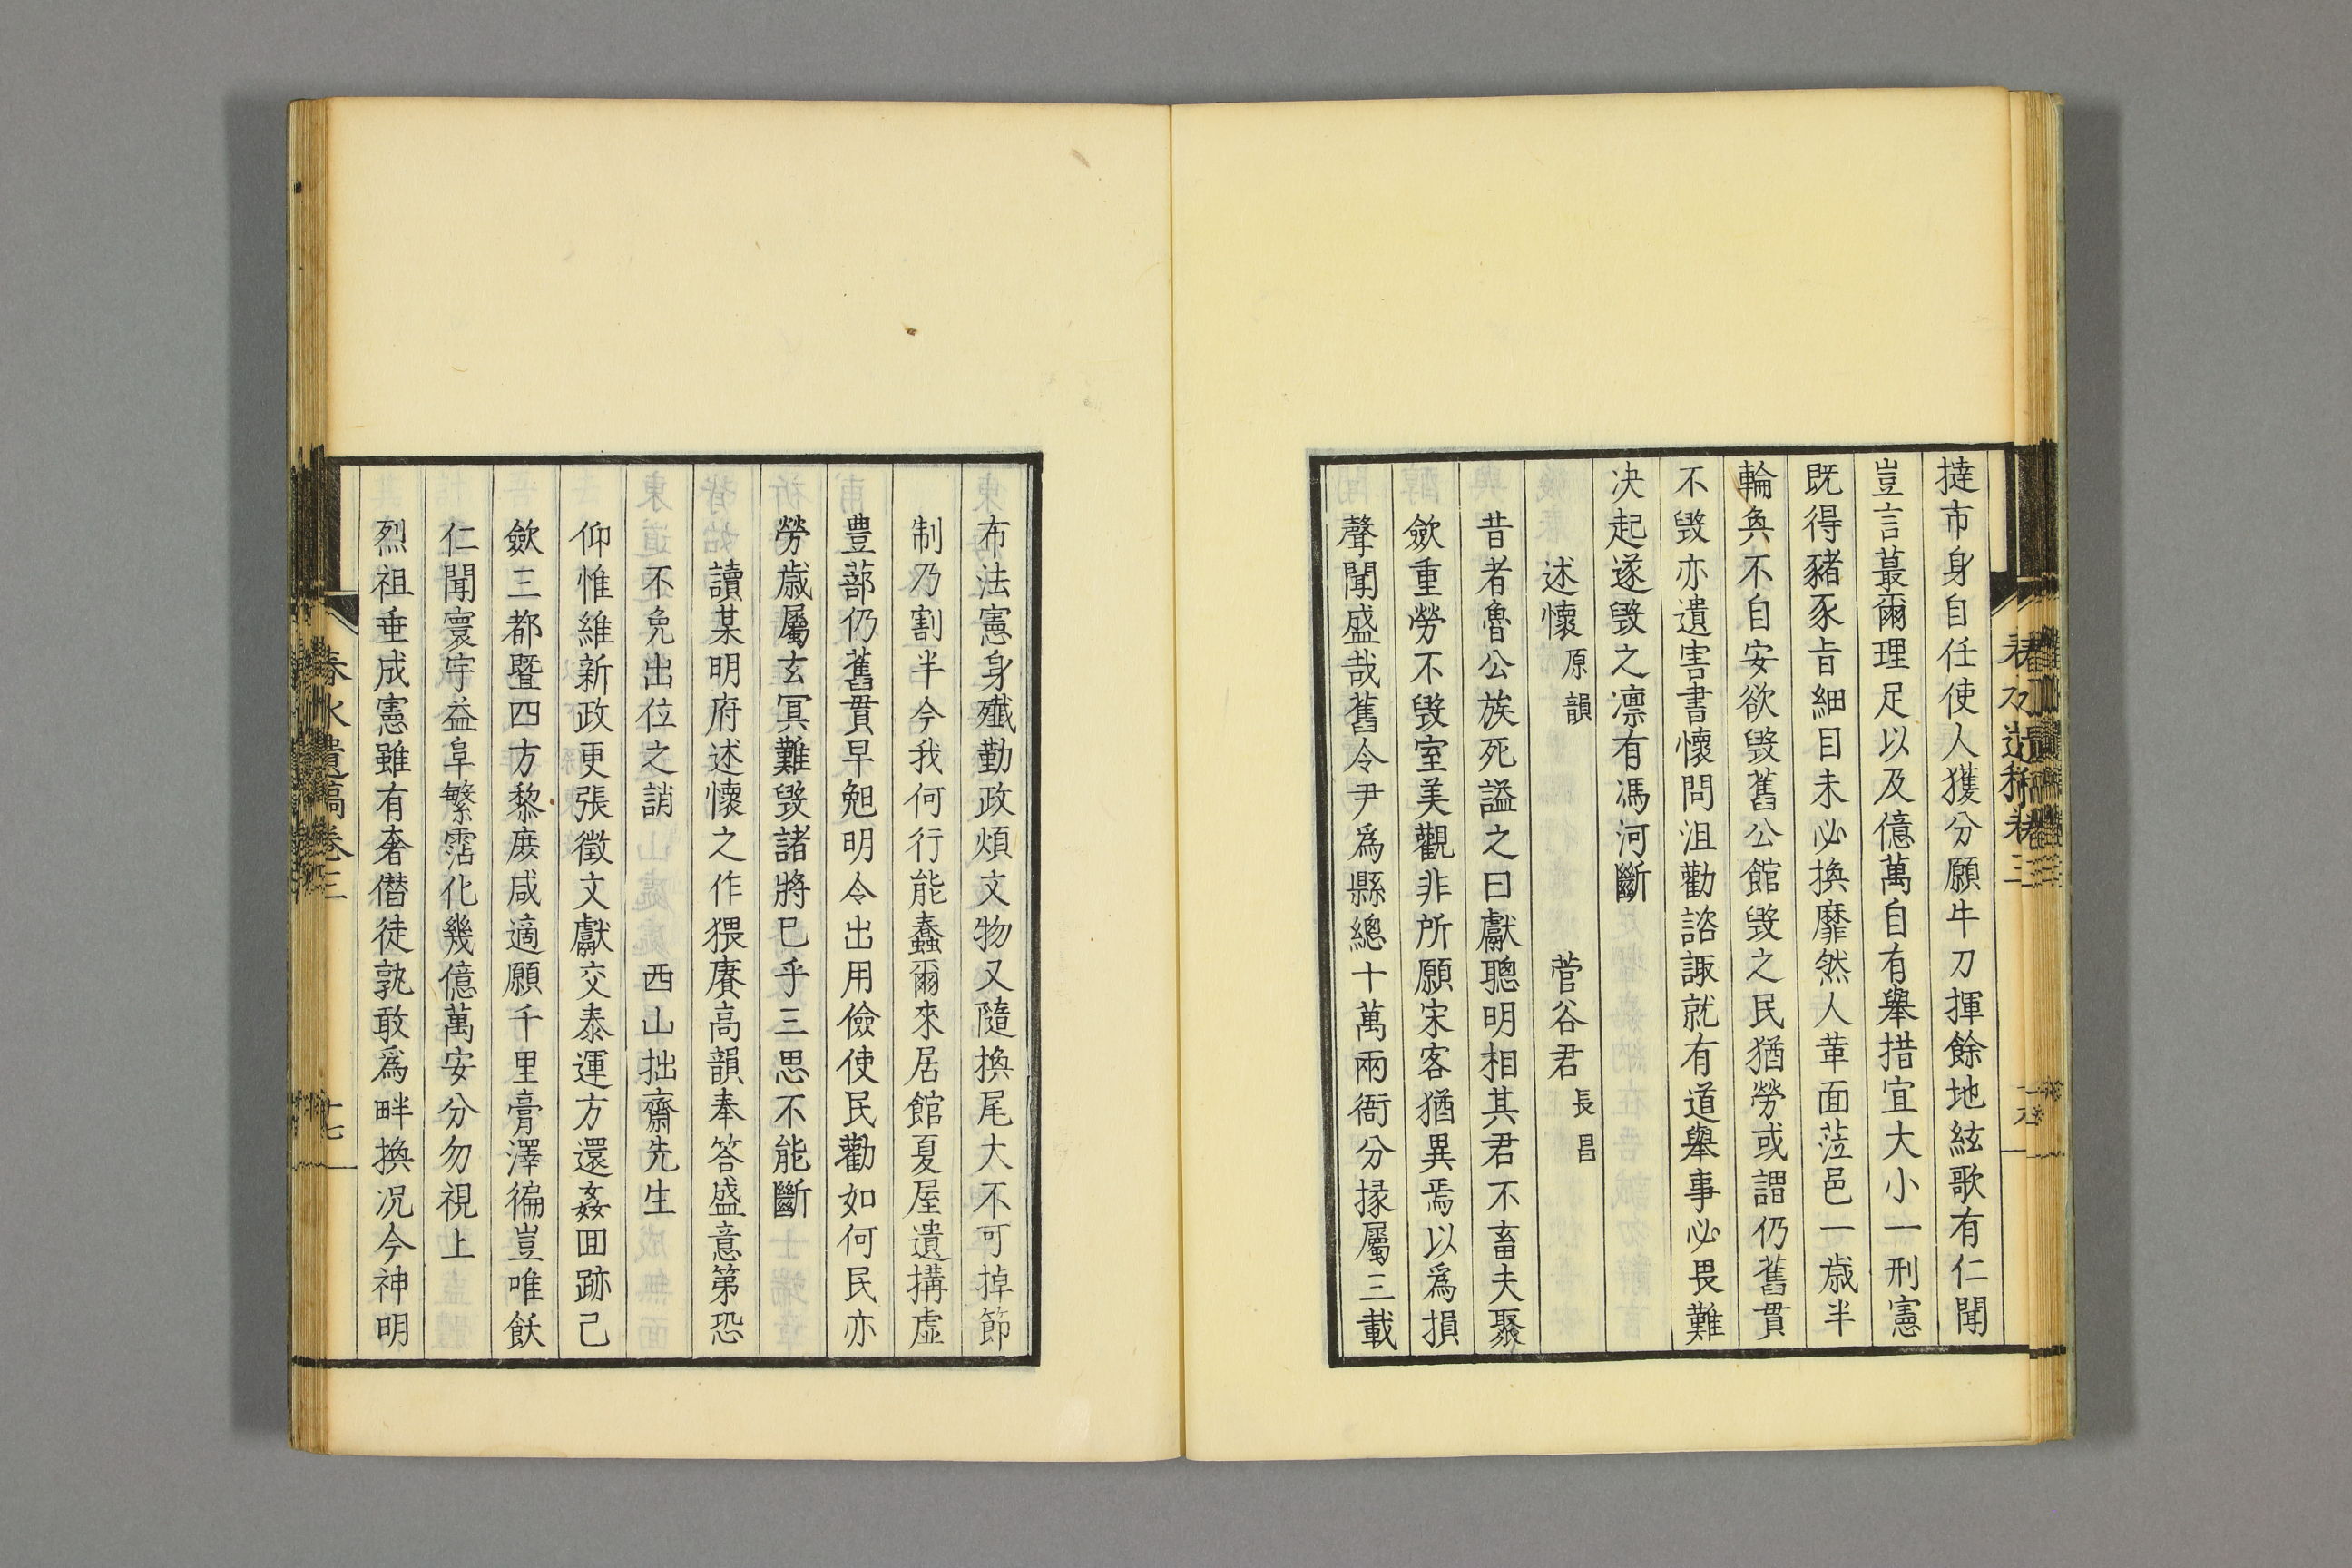 撻市身自任使人獲分願牛刀揮餘地絃歌有仁聞
豈言蕞爾理足以及億萬自有舉措宜大小一刑憲
既得豬豕㫖細目未必換靡然人革面蒞邑一歲半
輪奐不自安欲毀舊公館毀之民猶勞或謂仍舊貫
不毀亦遺害書懷問沮勸諮諏就有道舉事必畏難
决起遂毀之凛有馮河斷
述懷 原韻 菅谷君 長昌
昔者魯公族死謚之曰獻聰明相其君不畜夫聚
斂重勞不毀室美觀非所願宋客猶異焉以爲損
聲聞盛哉舊令尹爲縣總十萬兩衙分掾屬三載
布法憲身殲勤政煩文物又隨換尾大不可掉節
制乃割半今我何行能蠢爾來居館夏屋遺搆虛
豊蔀仍舊貫早䰟明令出用儉使民勸如何民亦
勞歲屬玄冥難毀諸將已乎三思不能斷
讀某明府述懷之作猥賡高韻奉答盛意第恐
不免出位之誚 西山拙齋先生
仰惟維新政更張徵文獻交泰運方還姦回跡己
斂三都暨四方黎庶咸適願千里膏澤徧豈唯飫
仁聞寰宇益阜繁霑化幾億萬安分勿視上
烈祖垂成憲雖有奢僭徒孰敢爲畔換況今神明
春水遺稿卷三
十七